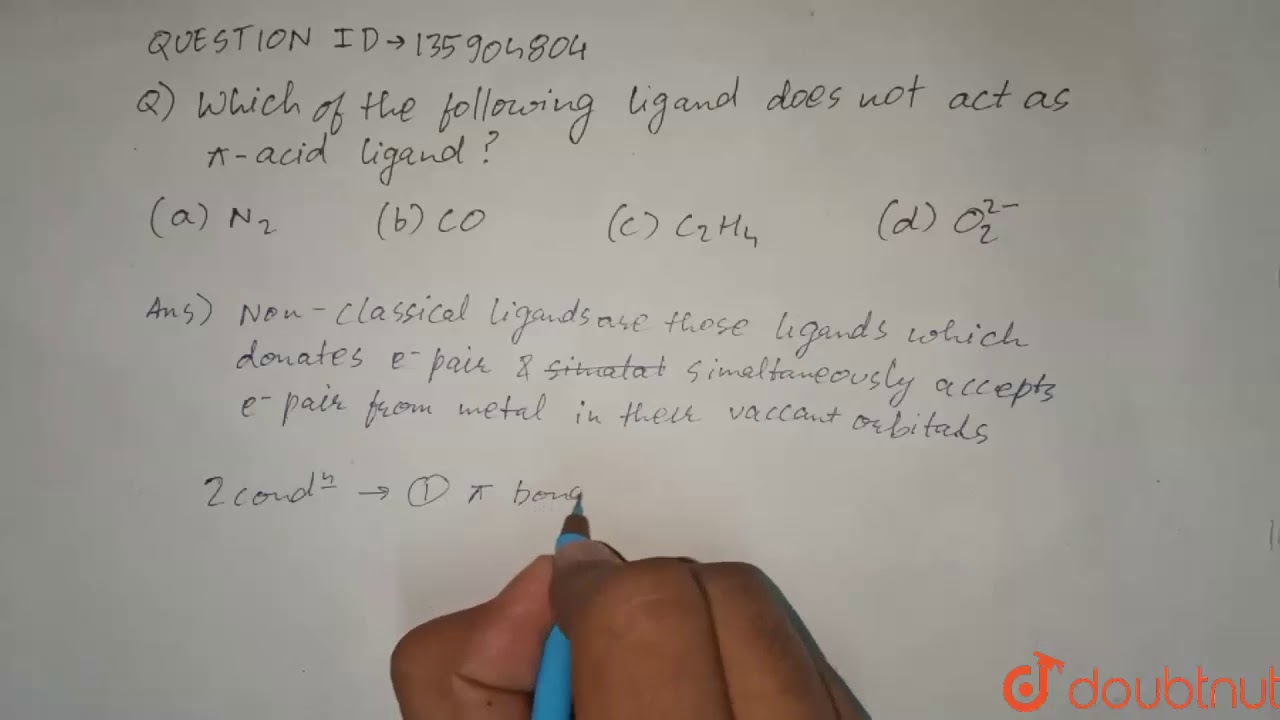 QUESTION ID → 135904804
Q) Which of the following ligand does not act as
π-acid ligand?
(a) N₂ (b) CO (c) C₂H₄ (d) O₂²⁻
Ans) Non-classical ligands are those ligands which
donates e⁻ pair & simulat simultaneously accepts
e⁻ pair from metal in their vaccant orbitals
2 condⁿ → ① π bond
doubtnut